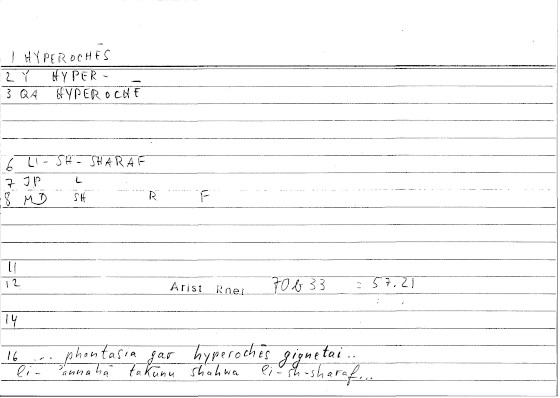 1 HYPEROCHĒS
2 Y HYPER-
3 QA HYPEROCHĒ
6 LI-SH-SHARAF
7 JP L
8 MD SH R F
11
12 Arist Rhet 70b33 = 57.21
14
16 ... phantasia gar hyperochēs gignetai..
li-'annahā takūnu shahwa li-sh-sharaf...